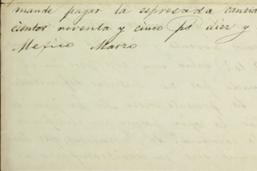 mande pagar la espresada cantid
cientos noventa y cinco ps diez y
Mexico Marzo